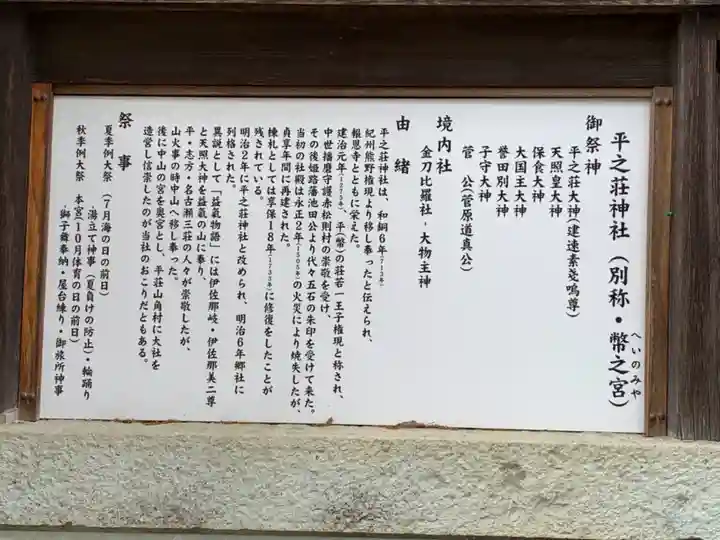 平之荘神社(別称・幣之宮)
へいのみや
御祭神
平之荘大神(建速素戔嗚尊)
天照皇大神
保食大神
大国主大神
誉田別大神
子守大神
菅 公(菅原道真公)
境内社
金刀比羅社・大物主神
由緒
平之荘神社は、和銅6年(713年)
紀州熊野権現より移し奉ったと伝えられ、
報恩寺とともに栄えた。
建治元年(1275年)、平(幣)の荘若一王子権現と称され、
中世播磨守護赤松則村の崇敬を受け、
その後姫路藩池田公より代々五石の朱印を受けて来た。
当初の社殿は永正2年(1505年)の火災により焼失したが、
貞享年間に再建された。
棟札としては享保18年(1733年)に修復をしたことが
残されている。
明治2年に平之荘神社と改められ、明治6年郷社に
列格された。
異説として「益氣物語」には伊佐那岐・伊佐那美二尊
と天照大神を益氣の山に奉り、
平・志方・名古瀬三荘の人々が崇敬したが、
山火事の時中山へ移し奉った。
後に中山の宮を奥宮とし、平荘山角村に大社を
造営し信崇したのが当社のおこりだともある。
祭事
夏季例大祭 (7月海の日の前日)
・湯立て神事(夏負けの防止)・輪踊り
秋季例大祭 本宮(10月体育の日の前日)
・獅子舞奉納・屋台練り・御旅所神事